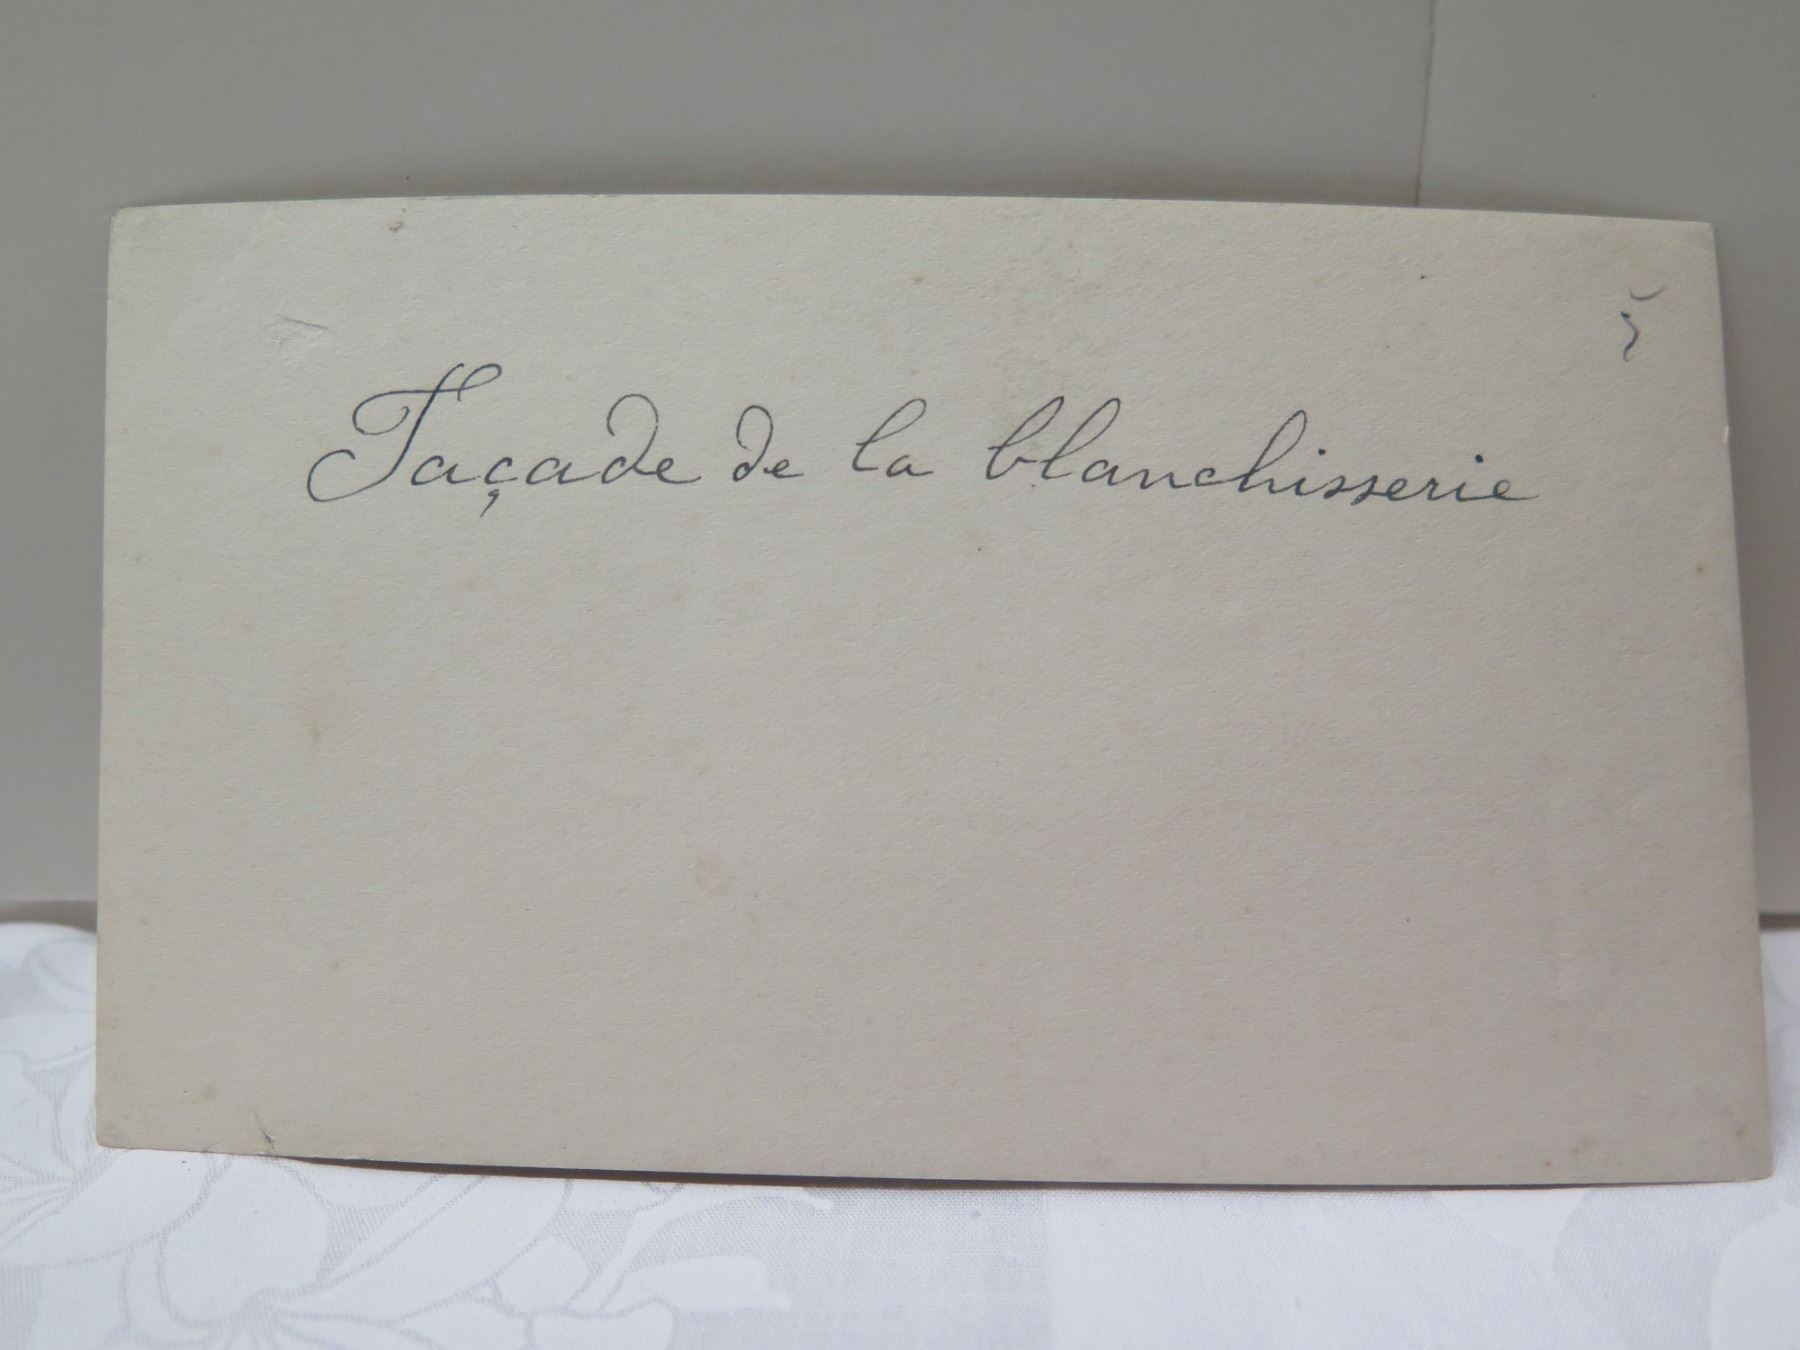 Façade de la blanchisserie